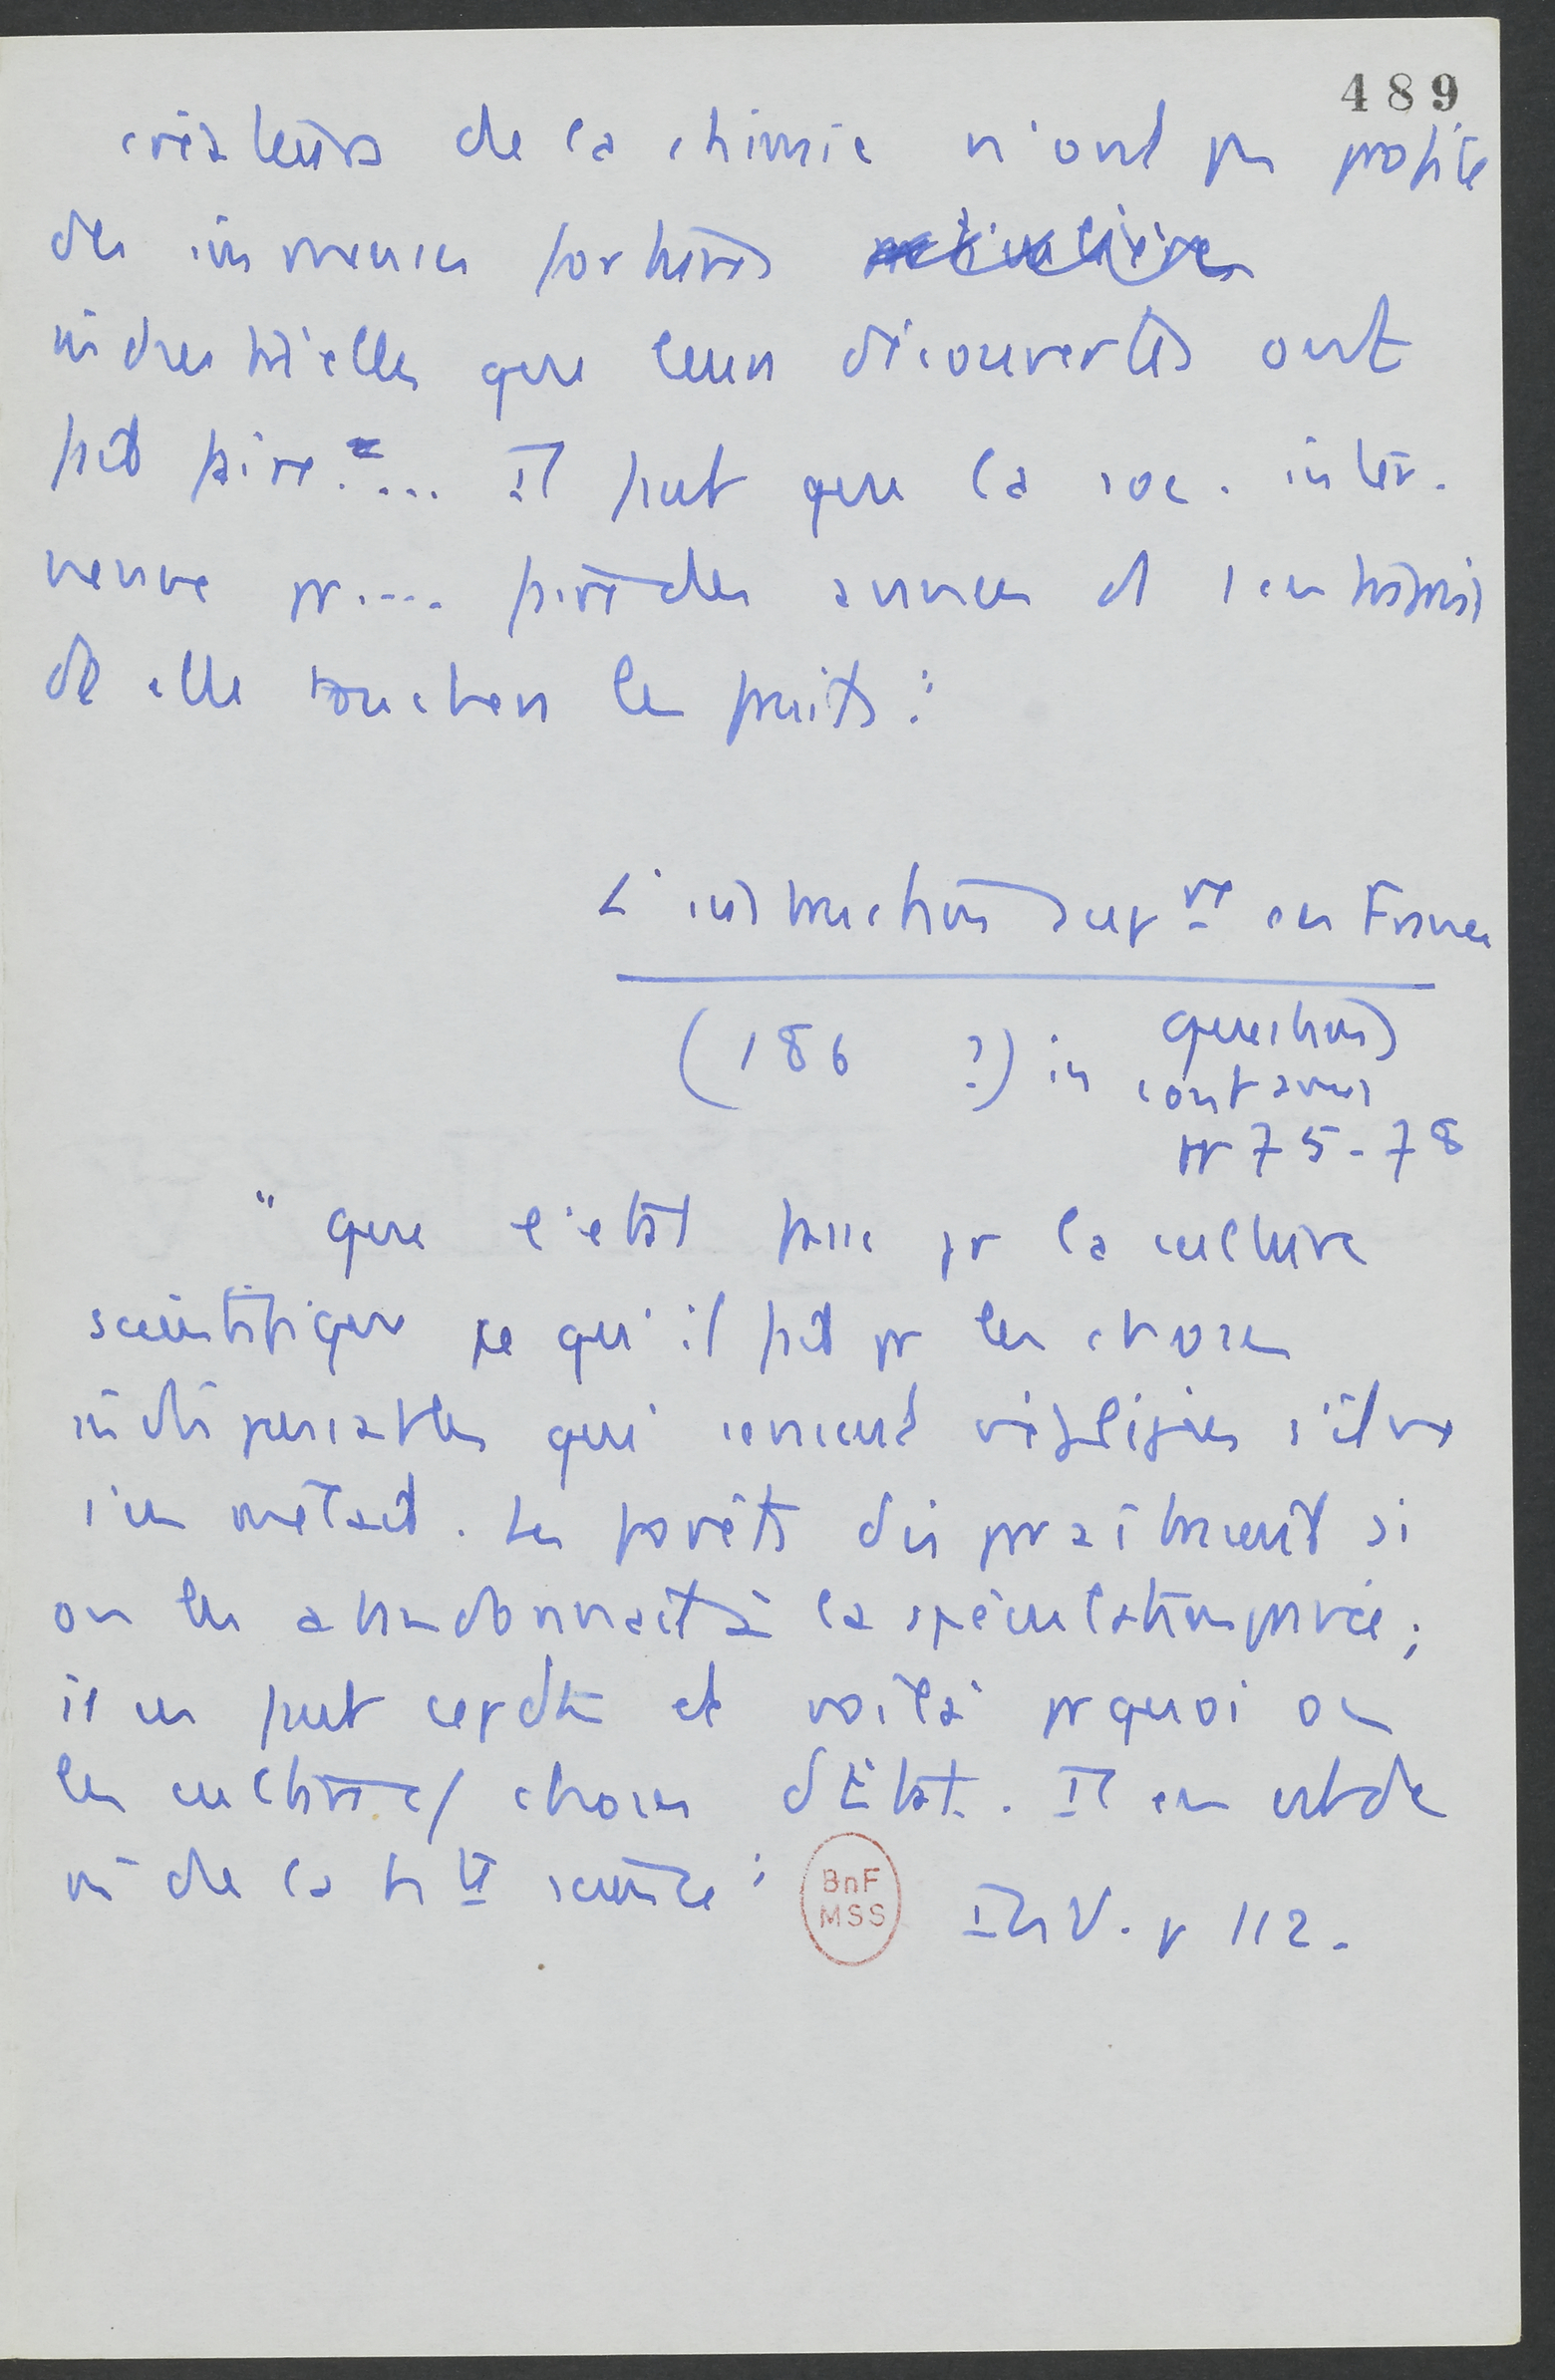 489
créateurs de la chimie n'ont pas profité
des immenses fortunes
industrielles que leurs découvertes ont
fait faire.... Il faut que la soc. inter-
vienne pr.... faire des avances et
elle touchera les fruits"
L'instruction supre en France
(186 ?) in questions
contemps
pp 75-78
"que l'état fasse pr la culture
scientifique ce qu'il fait pr les choses
indispensables qui seraient négligées s'il ne
s'en mêlait. Les forêts disparaîtraient si
on les abandonnait à la spéculation privée;
il en faut cepdt et voilà pquoi on
les choses d'Etat. Il en est de
m de la hte science"
BnF
MSS
p 112.